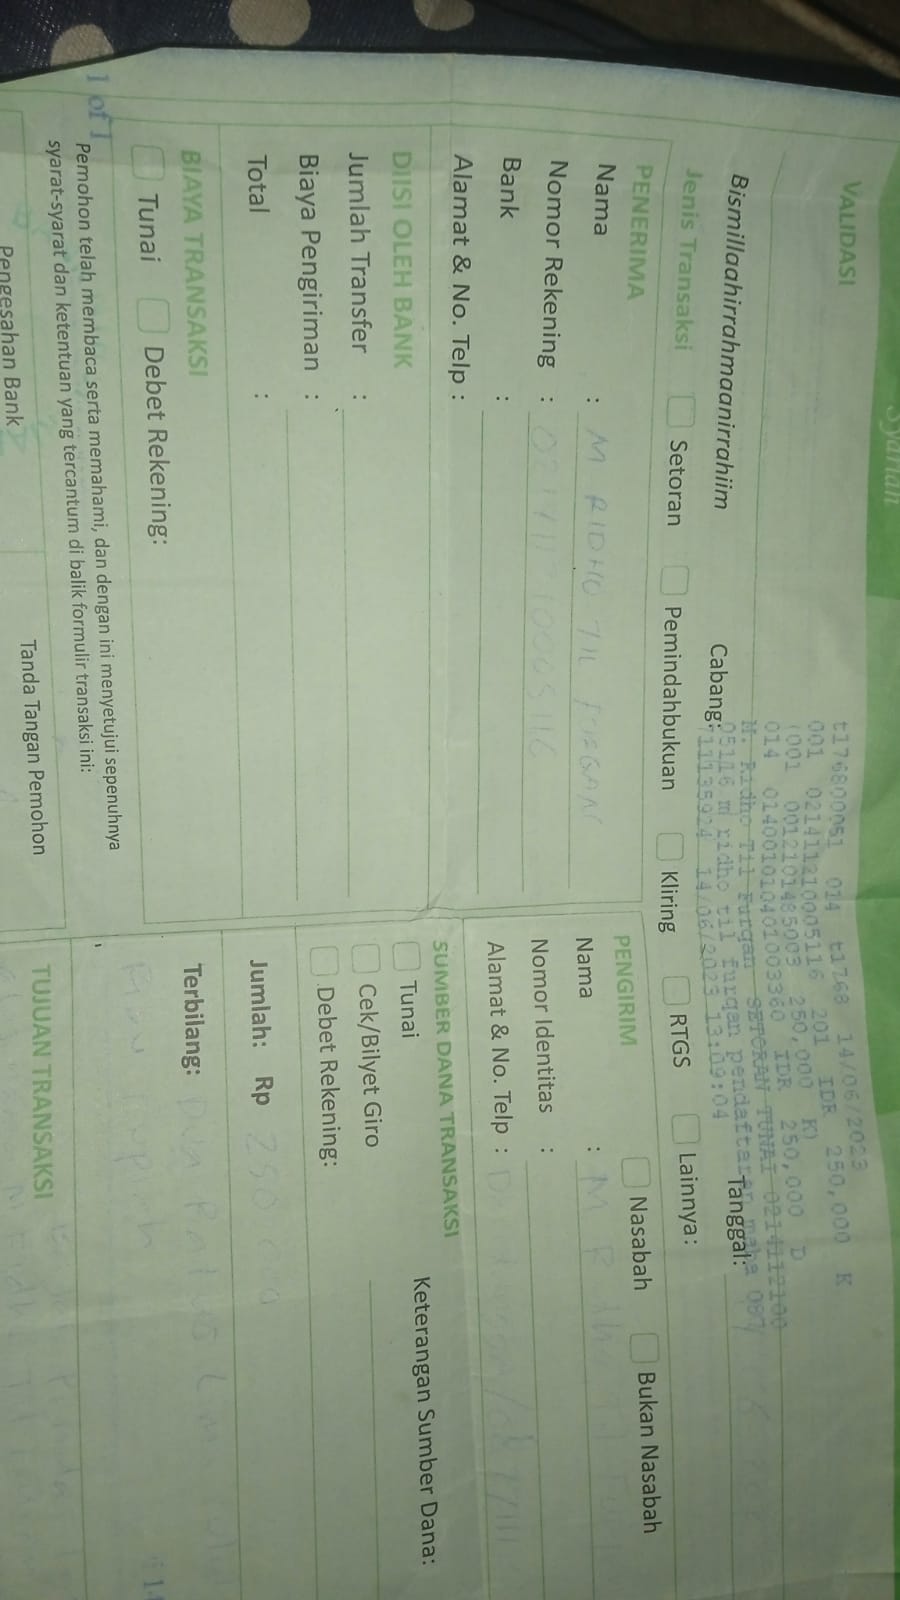 Syariah
VALIDASI
t176800051 014 t1768 14/06/2023
001 021411210005116 201 IDR 250,000 K
(001 0012101485003 250,000 K)
014 014001010401003360 IDR 250,000 D
M. Ridho Til Furqan SETORAN TUNAI 0214112100
05116 m ridho til furqan pendaftaran maba 087
711135924 14/06/2023 13:09:04
Bismillaahirrahmaanirrahiim
Cabang:
Tanggal:
Jenis Transaksi Setoran Pemindahbukuan Kliring RTGS Lainnya:
PENERIMA
Nama : M RIDHO TIL FURQAN
Nomor Rekening :
Bank :
Alamat & No. Telp :
PENGIRIM Nasabah Bukan Nasabah
Nama : M R
Nomor Identitas :
Alamat & No. Telp :
DIISI OLEH BANK
Jumlah Transfer :
Biaya Pengiriman :
Total :
SUMBER DANA TRANSAKSI
Tunai
Keterangan Sumber Dana:
Cek/Bilyet Giro
Debet Rekening:
BIAYA TRANSAKSI
Tunai Debet Rekening:
Jumlah: Rp 250 000
Terbilang: Dua Ratus
1 of 1
Pemohon telah membaca serta memahami, dan dengan ini menyetujui sepenuhnya
syarat-syarat dan ketentuan yang tercantum di balik formulir transaksi ini:
TUJUAN TRANSAKSI
Pengesahan Bank
Tanda Tangan Pemohon